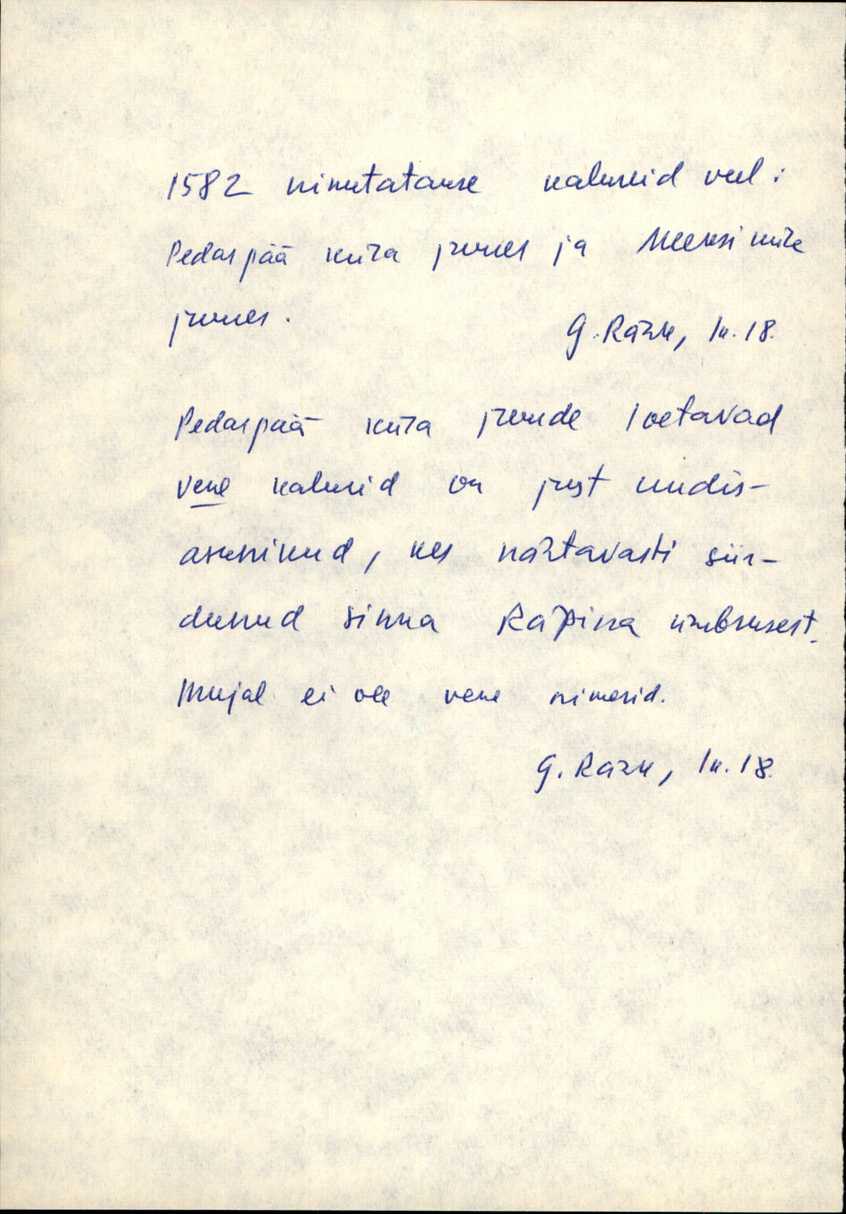 1582 nimetatakse kalureid veel:
Pedaspää küla juures ja Meeksi küla
juures.
G. Ränk, lk. 18.
Pedaspää küla juurde loetavad
vene kalurid on just uudis-
asunikud, kes nähtavasti siir-
dunud sinna Räpina ümbrusest.
Mujal ei ole vene nimesid.
G. Ränk, lk. 18.